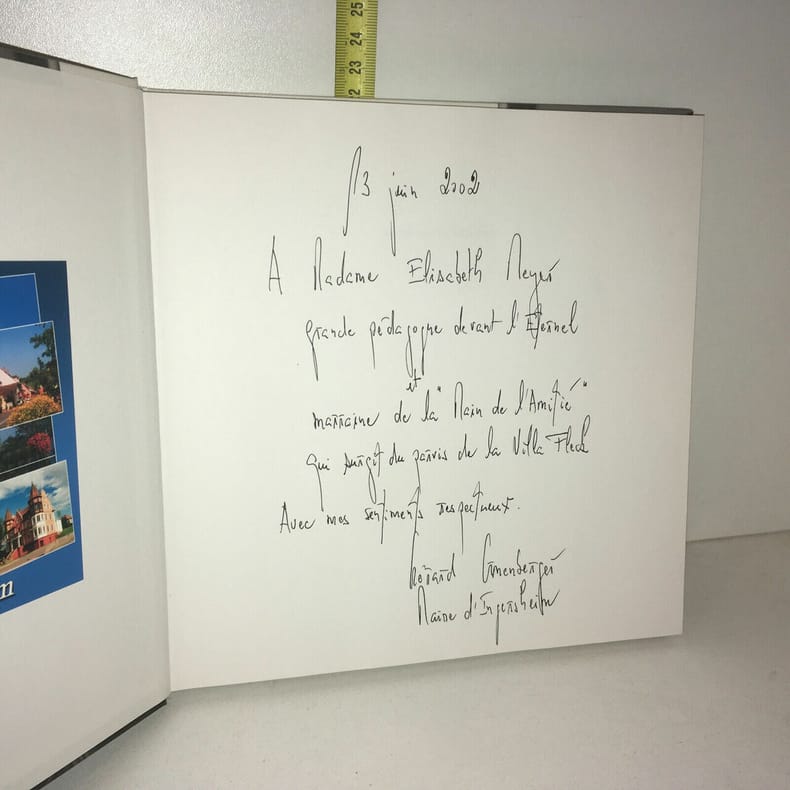 22 23 24 25
13 juin 2002
A Madame Elisabeth Meyer
grande pédagogue devant l'Eternel
et
marraine de la "Main de l'Amitié"
qui surgit du parvis de la Villa Fleck
Avec mes sentiments respectueux.
Gérard Cronenberger
Maire d'Ingersheim
m